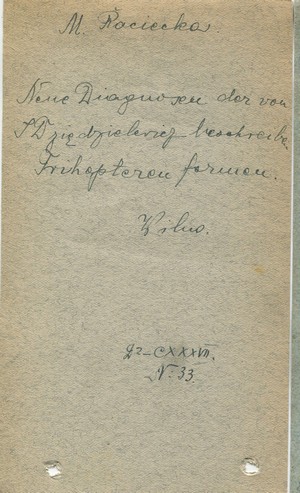 M. Racięcka
Neue Diagnosen der von
J Dziędzielewicz beschreibe
Trihopteren formen.
Wilno.
Dz-CXXXVII.
N. 33